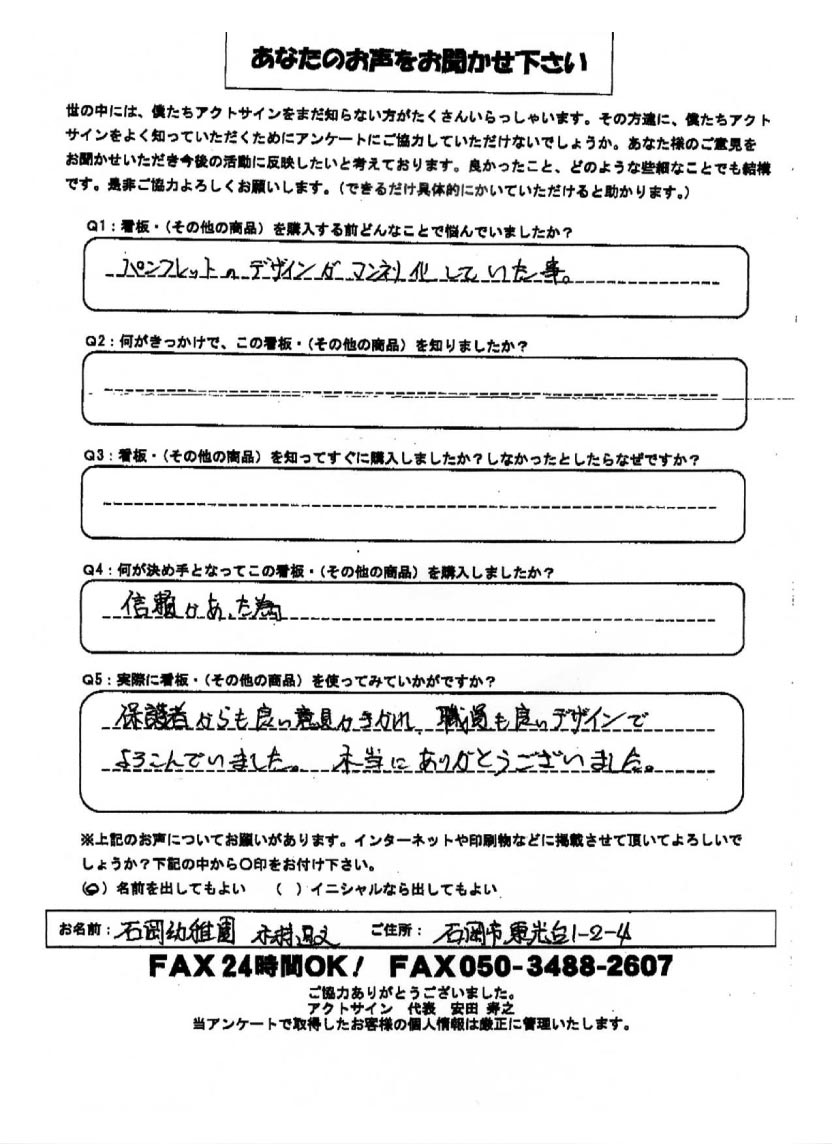 あなたのお声をお聞かせ下さい
世の中には、僕たちアクトサインをまだ知らない方がたくさんいらっしゃいます。その方達に、僕たちアクト
サインをよく知っていただくためにアンケートにご協力していただけないでしょうか。あなた様のご意見を
お聞かせいただき今後の活動に反映したいと考えております。良かったこと、どのような些細なことでも結構
です。是非ご協力よろしくお願いします。（できるだけ具体的にかいていただけると助かります。）
Q1：看板・（その他の商品）を購入する前どんなことで悩んでいましたか？
パンフレットのデザインがマンネリ化していた事。
Q2：何がきっかけで、この看板・（その他の商品）を知りましたか？
Q3：看板・（その他の商品）を知ってすぐに購入しましたか？しなかったとしたらなぜですか？
Q4：何が決め手となってこの看板・（その他の商品）を購入しましたか？
信頼があった為
Q5：実際に看板・（その他の商品）を使ってみていかがですか？
保護者からも良い意見がきかれ 職員も良いデザインで
よろこんでいました。 本当にありがとうございました。
※上記のお声についてお願いがあります。インターネットや印刷物などに掲載させて頂いてよろしいで
しょうか？下記の中から〇印をお付け下さい。
（〇）名前を出してもよい （ ）イニシャルなら出してもよい
お名前：石岡幼稚園 ご住所：石岡市東光台1-2-4
FAX24時間OK！ FAX050-3488-2607
ご協力ありがとうございました。
アクトサイン 代表 安田 寿之
当アンケートで取得したお客様の個人情報は厳正に管理いたします。